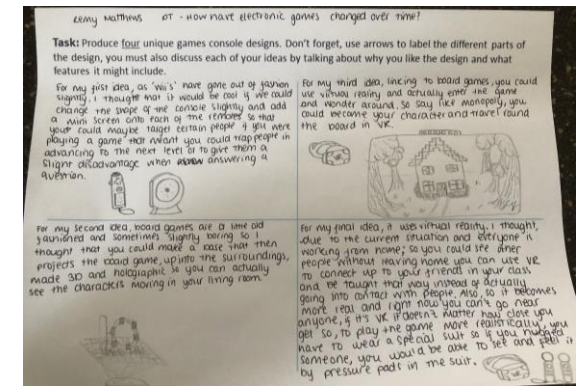 Lemy Matthews DT - How have electronic games changed over time?
Task: Produce four unique games console designs. Don't forget, use arrows to label the different parts of
the design, you must also discuss each of your ideas by talking about why you like the design and what
features it might include.
For my first idea, as 'Wii's' have gone out of fashion
slightly, I thought that it would be cool if we could
change the shape of the console slightly and add
a mini screen onto each of the remotes so that
you could maybe target certain people if you were
playing a game that meant you could trap people in
advancing to the next level or to give them a
slight disadvantage when answering a
question.
For my third idea, linking to board games, you could
use virtual reality and actually enter the game
and wonder around, so say like monopoly, you
could become your character and travel round
the board in VR.
For my second idea, board games are a little old
fashioned and sometimes slightly boring so I
thought that you could make a base that then
projects the board game, up into the surroundings,
made 3D and holographic so you can actually
see the characters moving in your living room.
For my final idea, it uses virtual reality. I thought,
due to the current situation and everyone is
working from home; so you could see other
people without leaving home you can use VR
to connect up to your friends in your class
and be taught that way instead of actually
going into contact with people. Also, so it becomes
more real and right now you can't go near
anyone, if it's VR it doesn't matter how close you
get so, to play the game more realistically, you
have to wear a special suit so if you hugged
someone, you would be able to see and feel it
by pressure pads in the suit.